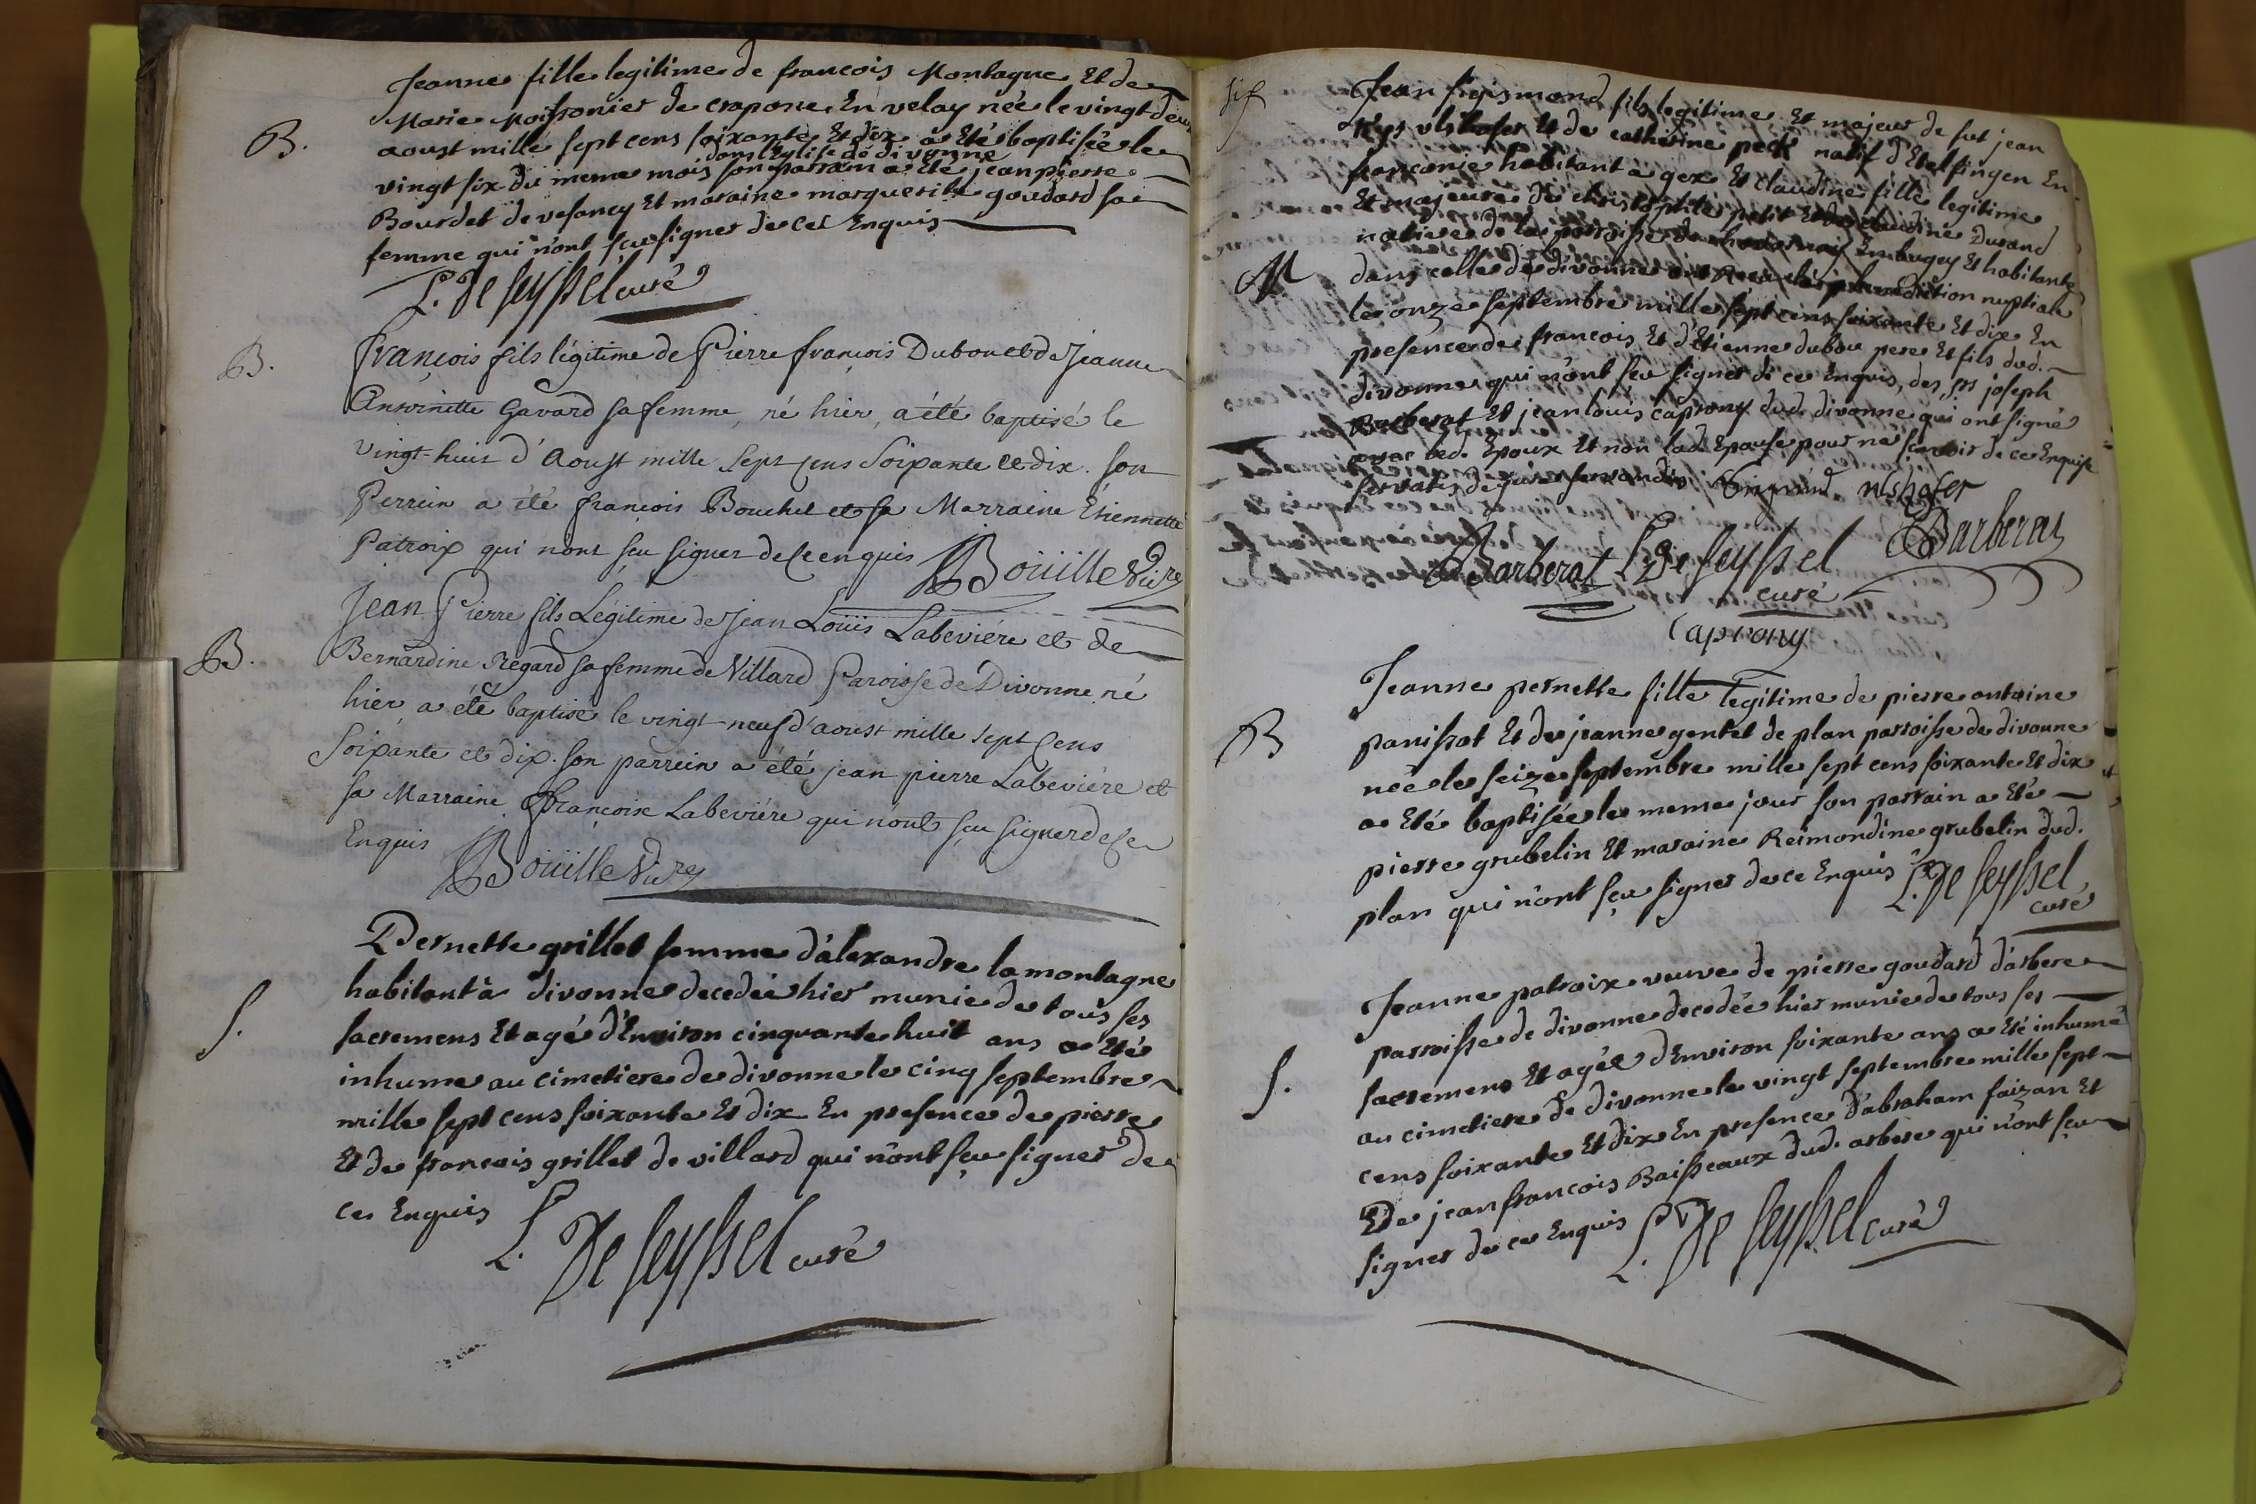 Jeanne fille legitime de francois Montagne Et de
Marie Moissonier de crapone En velay née le vingt deux
B.
aoust mille sept cens soixante Et dix a Eté baptisée le
dans l'Eglise de divonne
vingt six du meme mois son parrain a Eté jean pierre
Bourdet de vesancy Et maraine marguerite goudard sa
femme qui n'ont sçu signer de ce Enquis
L. De seyssel curé
B.
françois fils légitime de Pierre françois Dubou et de Jeanne
Antoinette Gavard sa femme, né hier, a été baptisé le
vingt-huit d'Aoust mille sept cens Soixante et dix. son
Perrein a été françois Bouchet et sa Marraine Etiennette
Patroix qui n'ont sçu signer de ce enquis Bouille Vic.re
Jean Pierre fils Légitime de Jean Loüis Labeviére et de
B.
Bernardine Regard sa femme de Villard Paroisse de Divonne né
hier a été baptisé le vingt-neuf d'aoust mille sept cens
Soixante et dix. son parrein a été jean pierre Labeviére et
sa Marraine françoise Labeviére qui n'ont sçu signer de ce
Enquis Boüille Vic.re
Pernette grillet femme d'alexandre lamontagne
habitant à divonne decedée hier munie de tous ses
S.
sacremens Et agé d'Environ cinquante huit ans a Eté
inhume au cimetiere de divonne le cinq septembre
mille sept cens soixante Et dix En presence de pierre
Et de francois grillet de villard qui n'ont sçu signer de
ce Enquis L. De seyssel curé
Jean sigismond fils legitime Et majeur de fut jean
Et de catherine peck natif d'Etelfingen En
franconie habitant à gex Et claudine fille legitime
Et majeure de christophle petit Et de claudine Durand
native de la parroisse de En bugey Et habitante
M
dans celle de divonne ont Recu la benediction nuptiale
le onze septembre mille sept cens soixante Et dix En
presence de francois Et d'Etienne dubou pere Et fils dud.
divonne qui n'ont sçu signer de ce Enquis, des srs joseph
Barberat Et jean louis caprony dud. divonne qui ont signé
avec led. Epoux Et non lad. Epouse pour ne sçavoir de ce Enquise
Barberat L. De seyssel Barberat
curé
caprony
Jeanne pernette fille legitime de pierre antoine
B
panissot Et de jeanne gentet de plan parroisse de divonne
née le seize septembre mille sept cens soixante Et dix
a Eté baptisée le meme jour son parrain a Eté
pierre grubelin Et maraine Reimondine grubelin dud.
plan qui n'ont sçu signer de ce Enquis L. De seyssel
curé
Jeanne patroix veuve de pierre goudard d'arbere
parroisse de divonne decedée hier munie de tous ses
S.
sacremens Et agée d'Environ soixante ans a Eté inhumé
au cimetiere de divonne le vingt septembre mille sept
cens soixante Et dix En presence d'abraham faizan Et
De jean francois Baisseaux dud. arbere qui n'ont sçu
signer de ce Enquis L. De seyssel curé